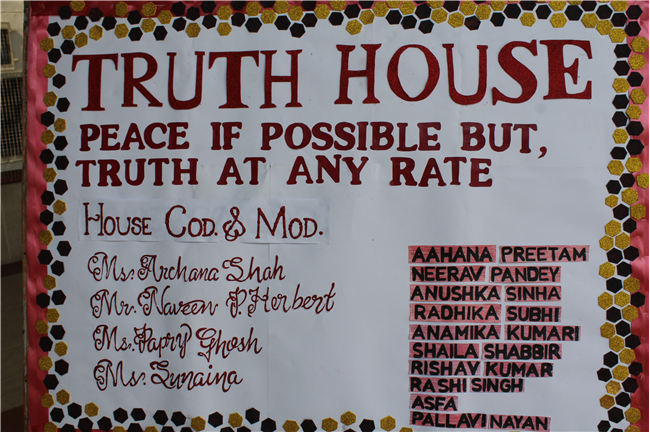 TRUTH HOUSE
PEACE IF POSSIBLE BUT,
TRUTH AT ANY RATE
HOUSE COD. & MOD.
Ms. Archana Shah
Mr. Naveen P. Herbert
Ms. Papry Ghosh
Ms. Sunaina
AAHANA PREETAM
NEERAV PANDEY
ANUSHKA SINHA
RADHIKA SUBHI
ANAMIKA KUMARI
SHAILA SHABBIR
RISHAV KUMAR
RASHI SINGH
ASFA
PALLAVI NAYAN